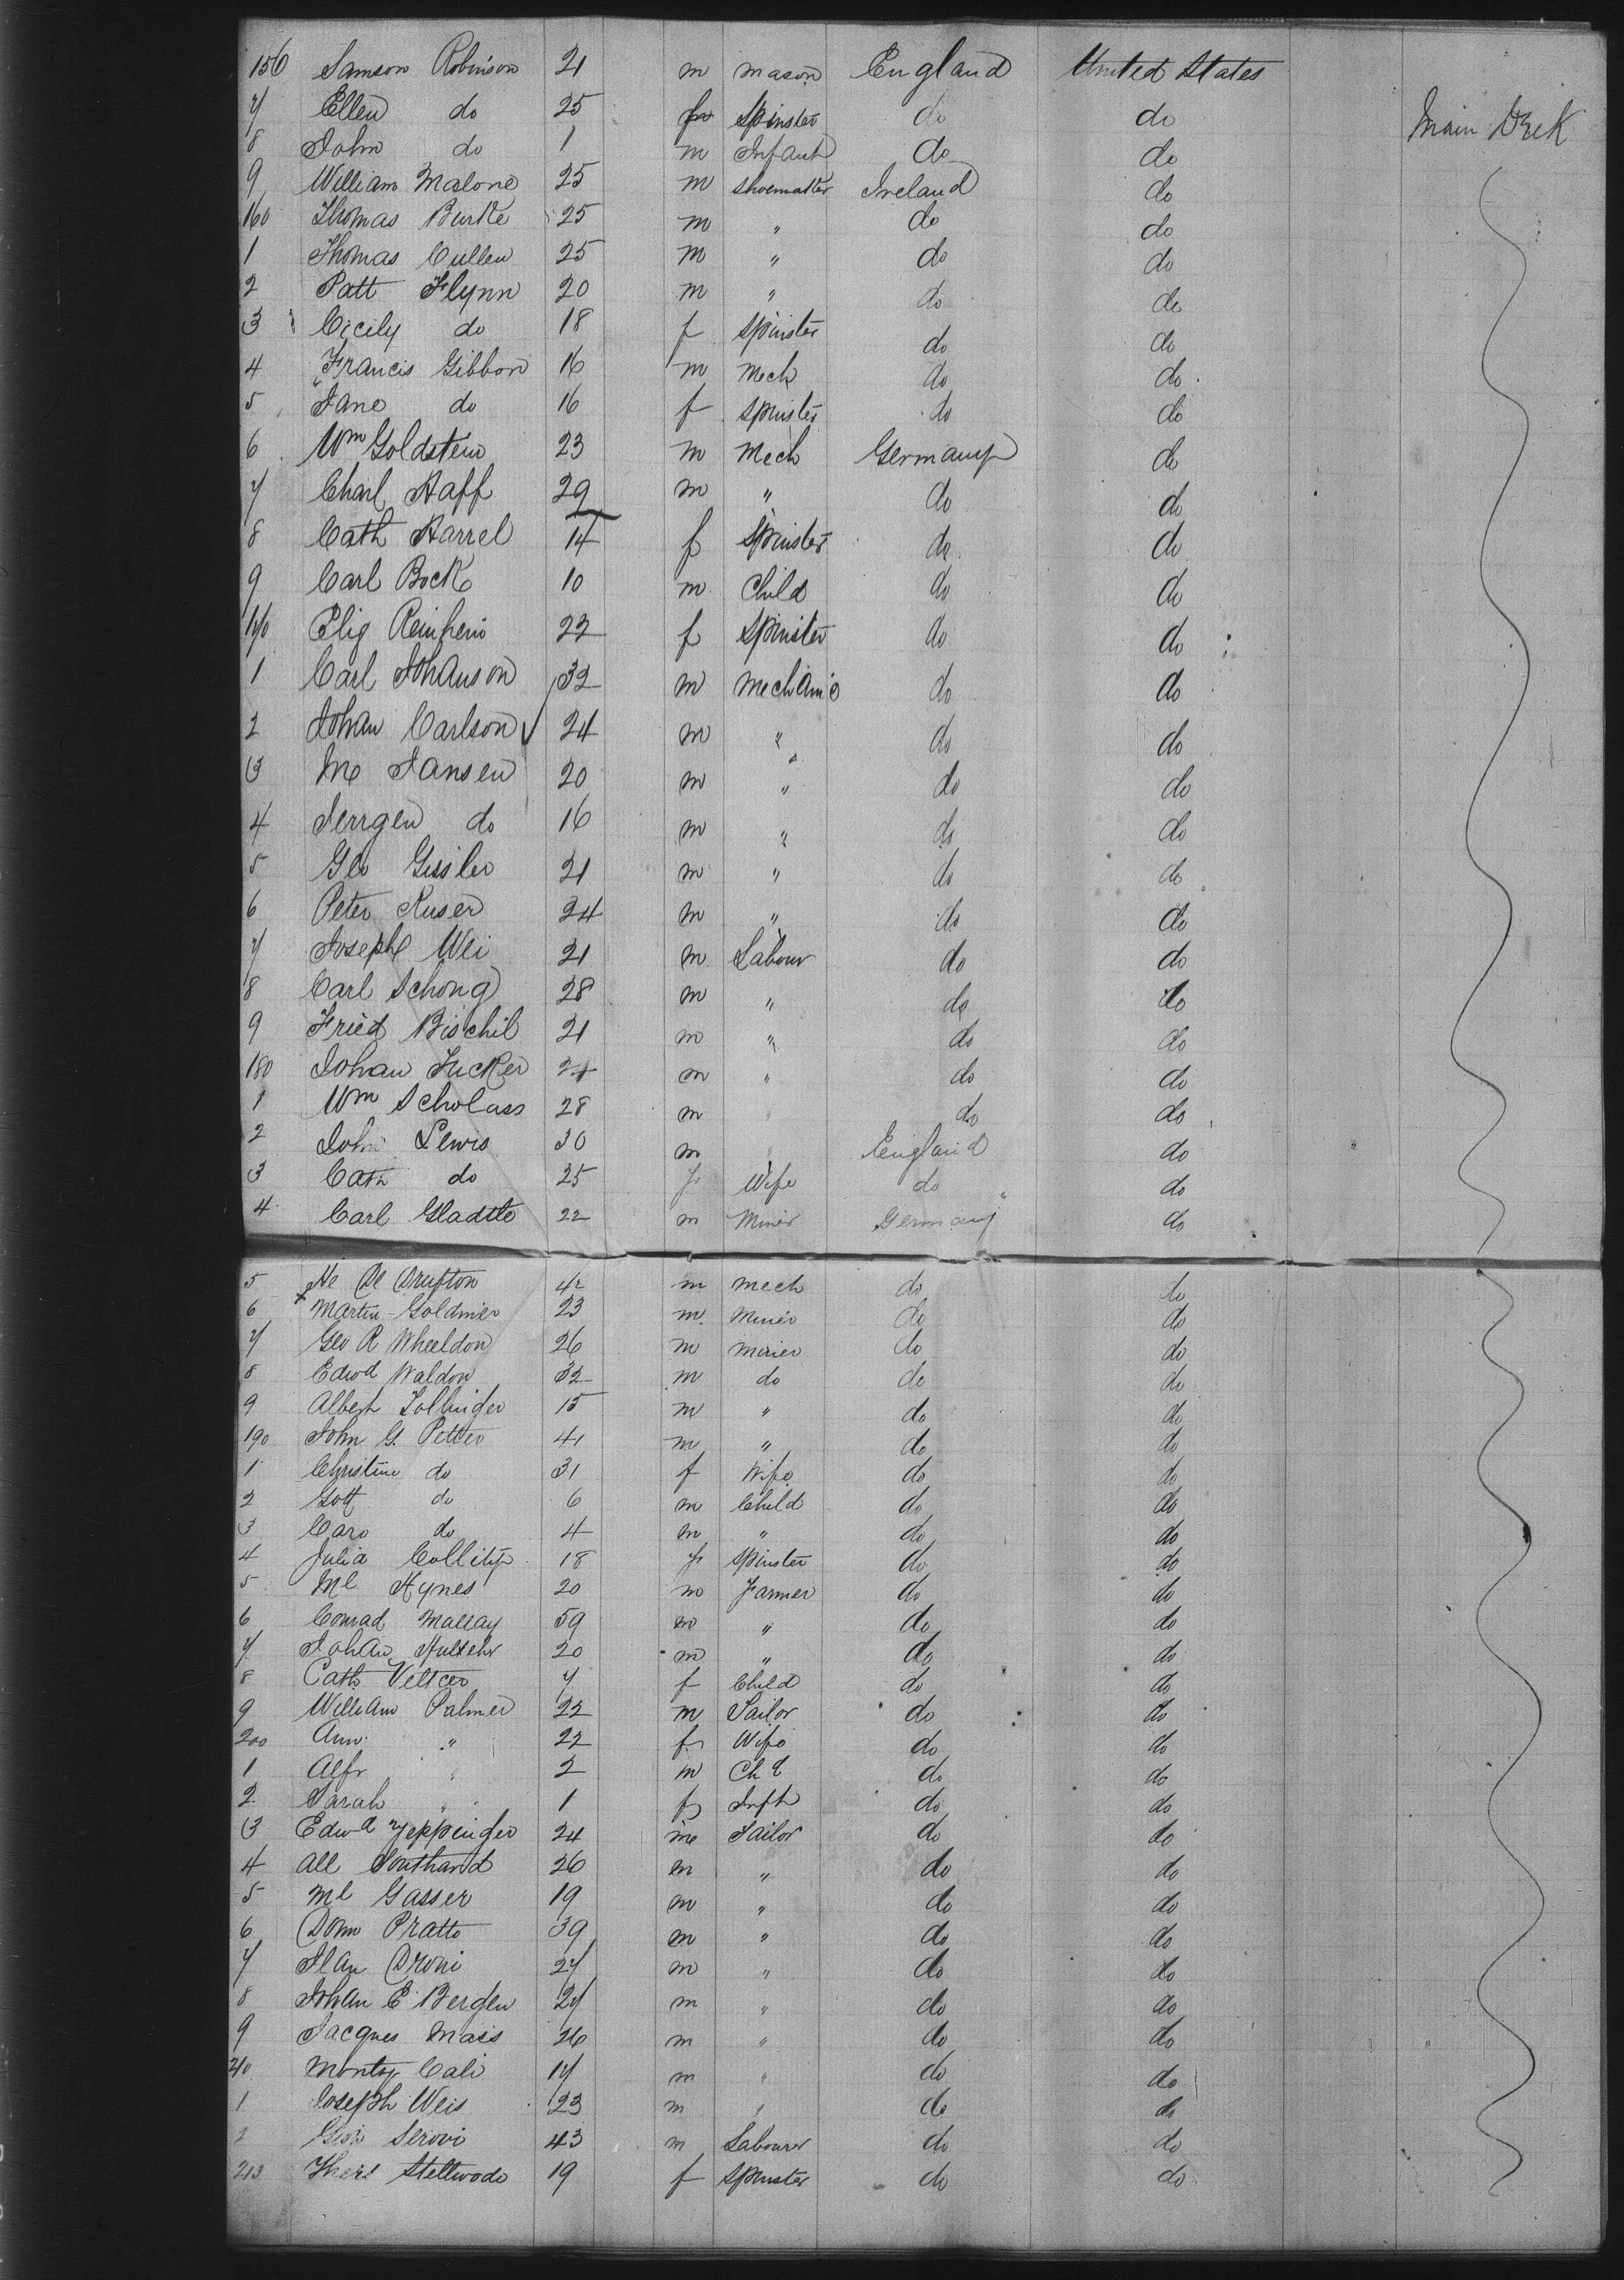 156 Samson Robinson 21 m mason England United States
7 Ellen do 25 f Spinster do do Main Deck
8 John do 1 m Infant do do
9 William Malone 25 m Shoemaker Ireland do
160 Thomas Burke 25 m " do do
1 Thomas Cullen 25 m " do do
2 Patt Flynn 20 m " do do
3 Cicily do 18 f Spinster do do
4 Francis Gibbon 16 m Mech do do
5 Jane do 16 f Spinster do do
6 Wm Goldstein 23 m Mech Germany do
7 Charl Haff 29 m " do do
8 Cath Harrel 14 f Spinster do do
9 Carl Bock 10 m Child do do
170 Elig 22 f Spinster do do
1 Carl Johanson 32 m Mechanic do do
2 Johan Carlson 24 m " do do
3 Jansen 20 m " do do
4 Jerrgen do 16 m " do do
5 Geo Gissler 21 m " do do
6 Peter Kuser 24 m " do do
7 Joseph Wei 21 m Labour do do
8 Carl Schong 28 m " do do
9 Fried Bischil 21 m " do do
180 Johan Tucker m " do do
1 Wm Scholass 28 m " do do
2 John Lewis 30 m " England do
3 Cath do 25 f Wife do do
4 Carl Gladtte 22 m Miner Germany do
5 De Drufton 42 m Mech do do
6 Martin Goldmier 23 m Miner do do
7 Geo R Wheeldon 26 m Minier do do
8 Edwd Waldon 32 m do do do
9 Albert Zollinger 15 m " do do
190 John G. Petter 41 m " do do
1 Christine do 31 f Wife do do
2 Gott do 6 m Child do do
3 Caro do 4 m " do do
4 Julia 18 f Spinster do do
5 Ml Hynes 20 m Farmer do do
6 Conrad Mallay 59 m " do do
7 Johan 20 m " do do
8 Cath 7 f Child do do
9 William Palmer 22 m Sailor do do
200 Ann " 22 f Wife do do
1 Alfr " 2 m Chd do do
2 Sarah " 1 f Inft do do
3 Edwd Zeppinger 24 m Sailor do do
4 All Southard 26 m " do do
5 Ml Gasser 19 m " do do
6 Dom Pratto 39 m " do do
7 27 m " do do
8 Johan E Bergen 27 m " do do
9 Jacques Mais 26 m " do do
210 Cali 17 m " do do
1 Joseph Weis 23 m " do do
2 Serovi 43 m Labourer do do
213 19 f Spinster do do